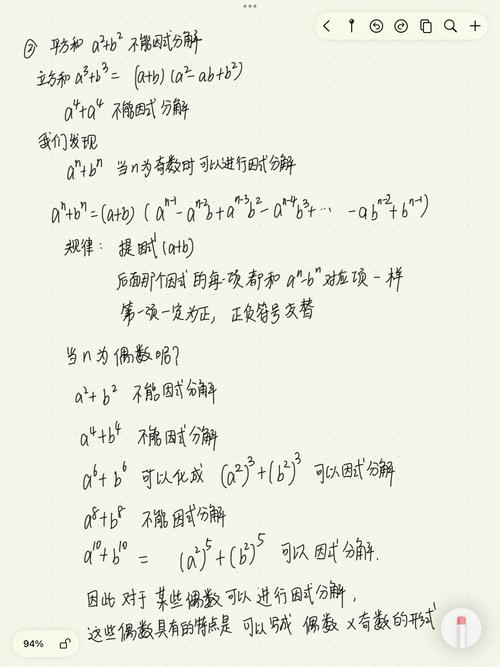 ② 平方和 a²+b² 不能因式分解
立方和 a³+b³ = (a+b)(a²-ab+b²)
a⁴+a⁴ 不能因式分解
我们发现
aⁿ+bⁿ 当n为奇数时可以进行因式分解
aⁿ+bⁿ=(a+b)(aⁿ⁻¹-aⁿ⁻²b+aⁿ⁻³b²-aⁿ⁻⁴b³+… -abⁿ⁻²+bⁿ⁻¹)
规律: 提因式(a+b)
后面那个因式的每一项都和aⁿ-bⁿ对应项一样
第一项一定为正, 正负符号交替
当n为偶数呢?
a²+b² 不能因式分解
a⁴+b⁴ 不能因式分解
a⁶+b⁶ 可以化成 (a²)³+(b²)³ 可以因式分解
a⁸+b⁸ 不能因式分解
a¹⁰+b¹⁰ = (a²)⁵+(b²)⁵ 可以因式分解.
因此对于某些偶数可以进行因式分解,
这些偶数具有的特点是可以写成 偶数×奇数的形式
94%